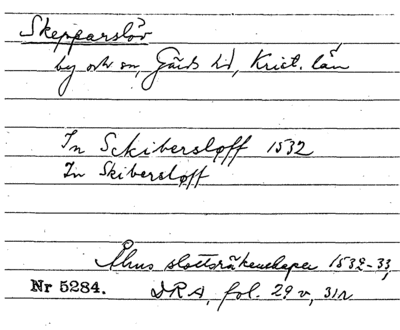 Skepparslöv
by och sn, Gärds hd, Krist. län
In Sckibersløff 1532
In Skibersløff
Åhus slottsräkenskaper 1532-33,
Nr 5284. DRA, fol. 29 v, 31 r